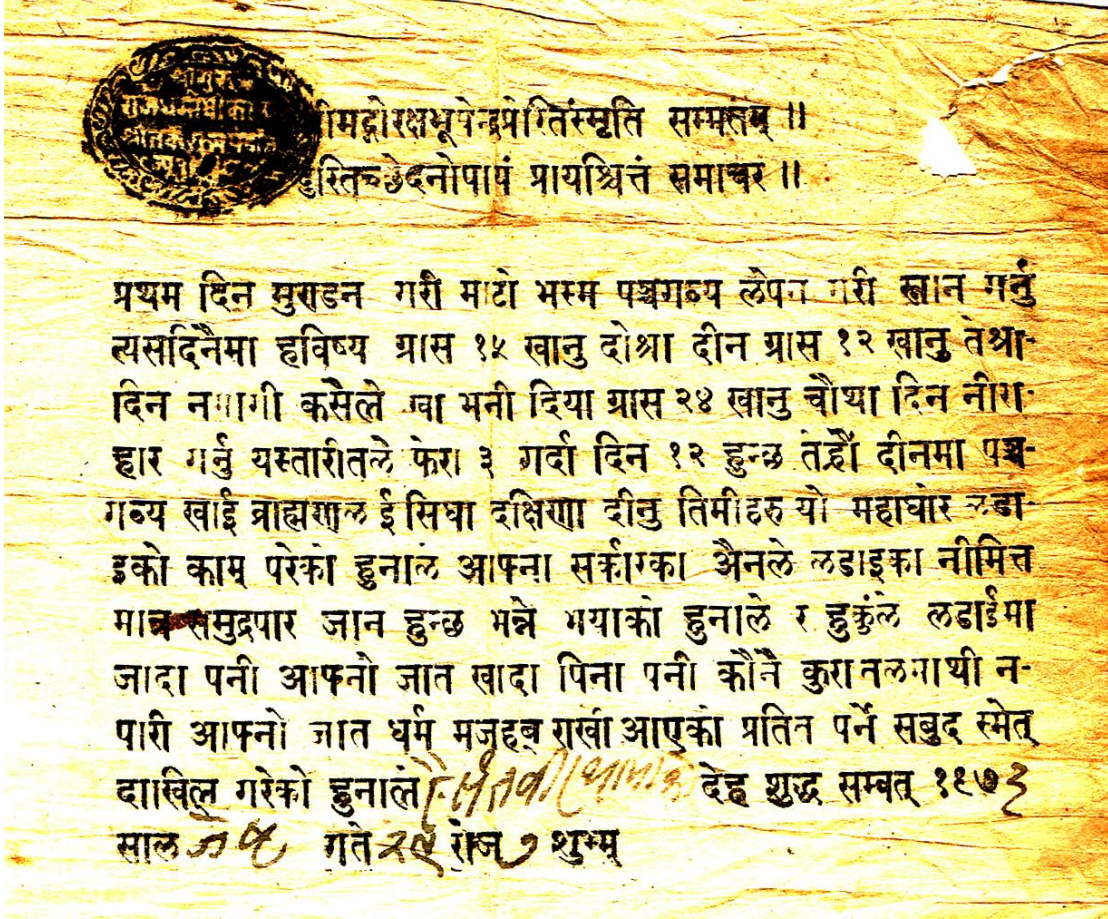 श्रीगुरु
राजधर्माधिकार
ीमद्गोरक्षभूपेन्द्रप्रेरितंस्मृति सम्मतम् ॥
रितच्छेदनोपापं प्रायश्चित्तं समाचर ॥
प्रथम दिन मुण्डन गरी माटो भस्म पञ्चगव्य लेपन गरी स्नान गर्नु
त्यसदिनैमा हविष्य ग्रास १५ खानु दोश्रा दीन ग्रास १२ खानु तेश्रा-
दिन नमागी कसैले खा भनी दिया ग्रास २४ खानु चौथा दिन नीरा-
हार गर्नु यस्तारीतले फेरा ३ गर्दा दिन १२ हुन्छ तेह्रौं दीनमा पञ्च-
गव्य खाई ब्राह्मणलाई सिधा दक्षिणा दीनु तिमीहरु यो महाघोर लडा-
इको काम् परेको हुनाले आफ्ना सर्कारका अैनले लडाइका नीमित्त
मात्र समुद्रपार जान हुन्छ भन्ने भयाको हुनाले र हुकुंले लडाईमा
जादा पनी आफ्नो जात खादा पिना पनी कौनै कुरा तलमाथी न-
पारी आफ्नो जात धर्म मजहब् राखी आएको प्रतित पर्ने सबुद स्मेत्
दाखिल् गरेको हुनाले देह शुद्ध सम्बत् १९७३
साल गते २९ रोज् ७ शुभ्म्